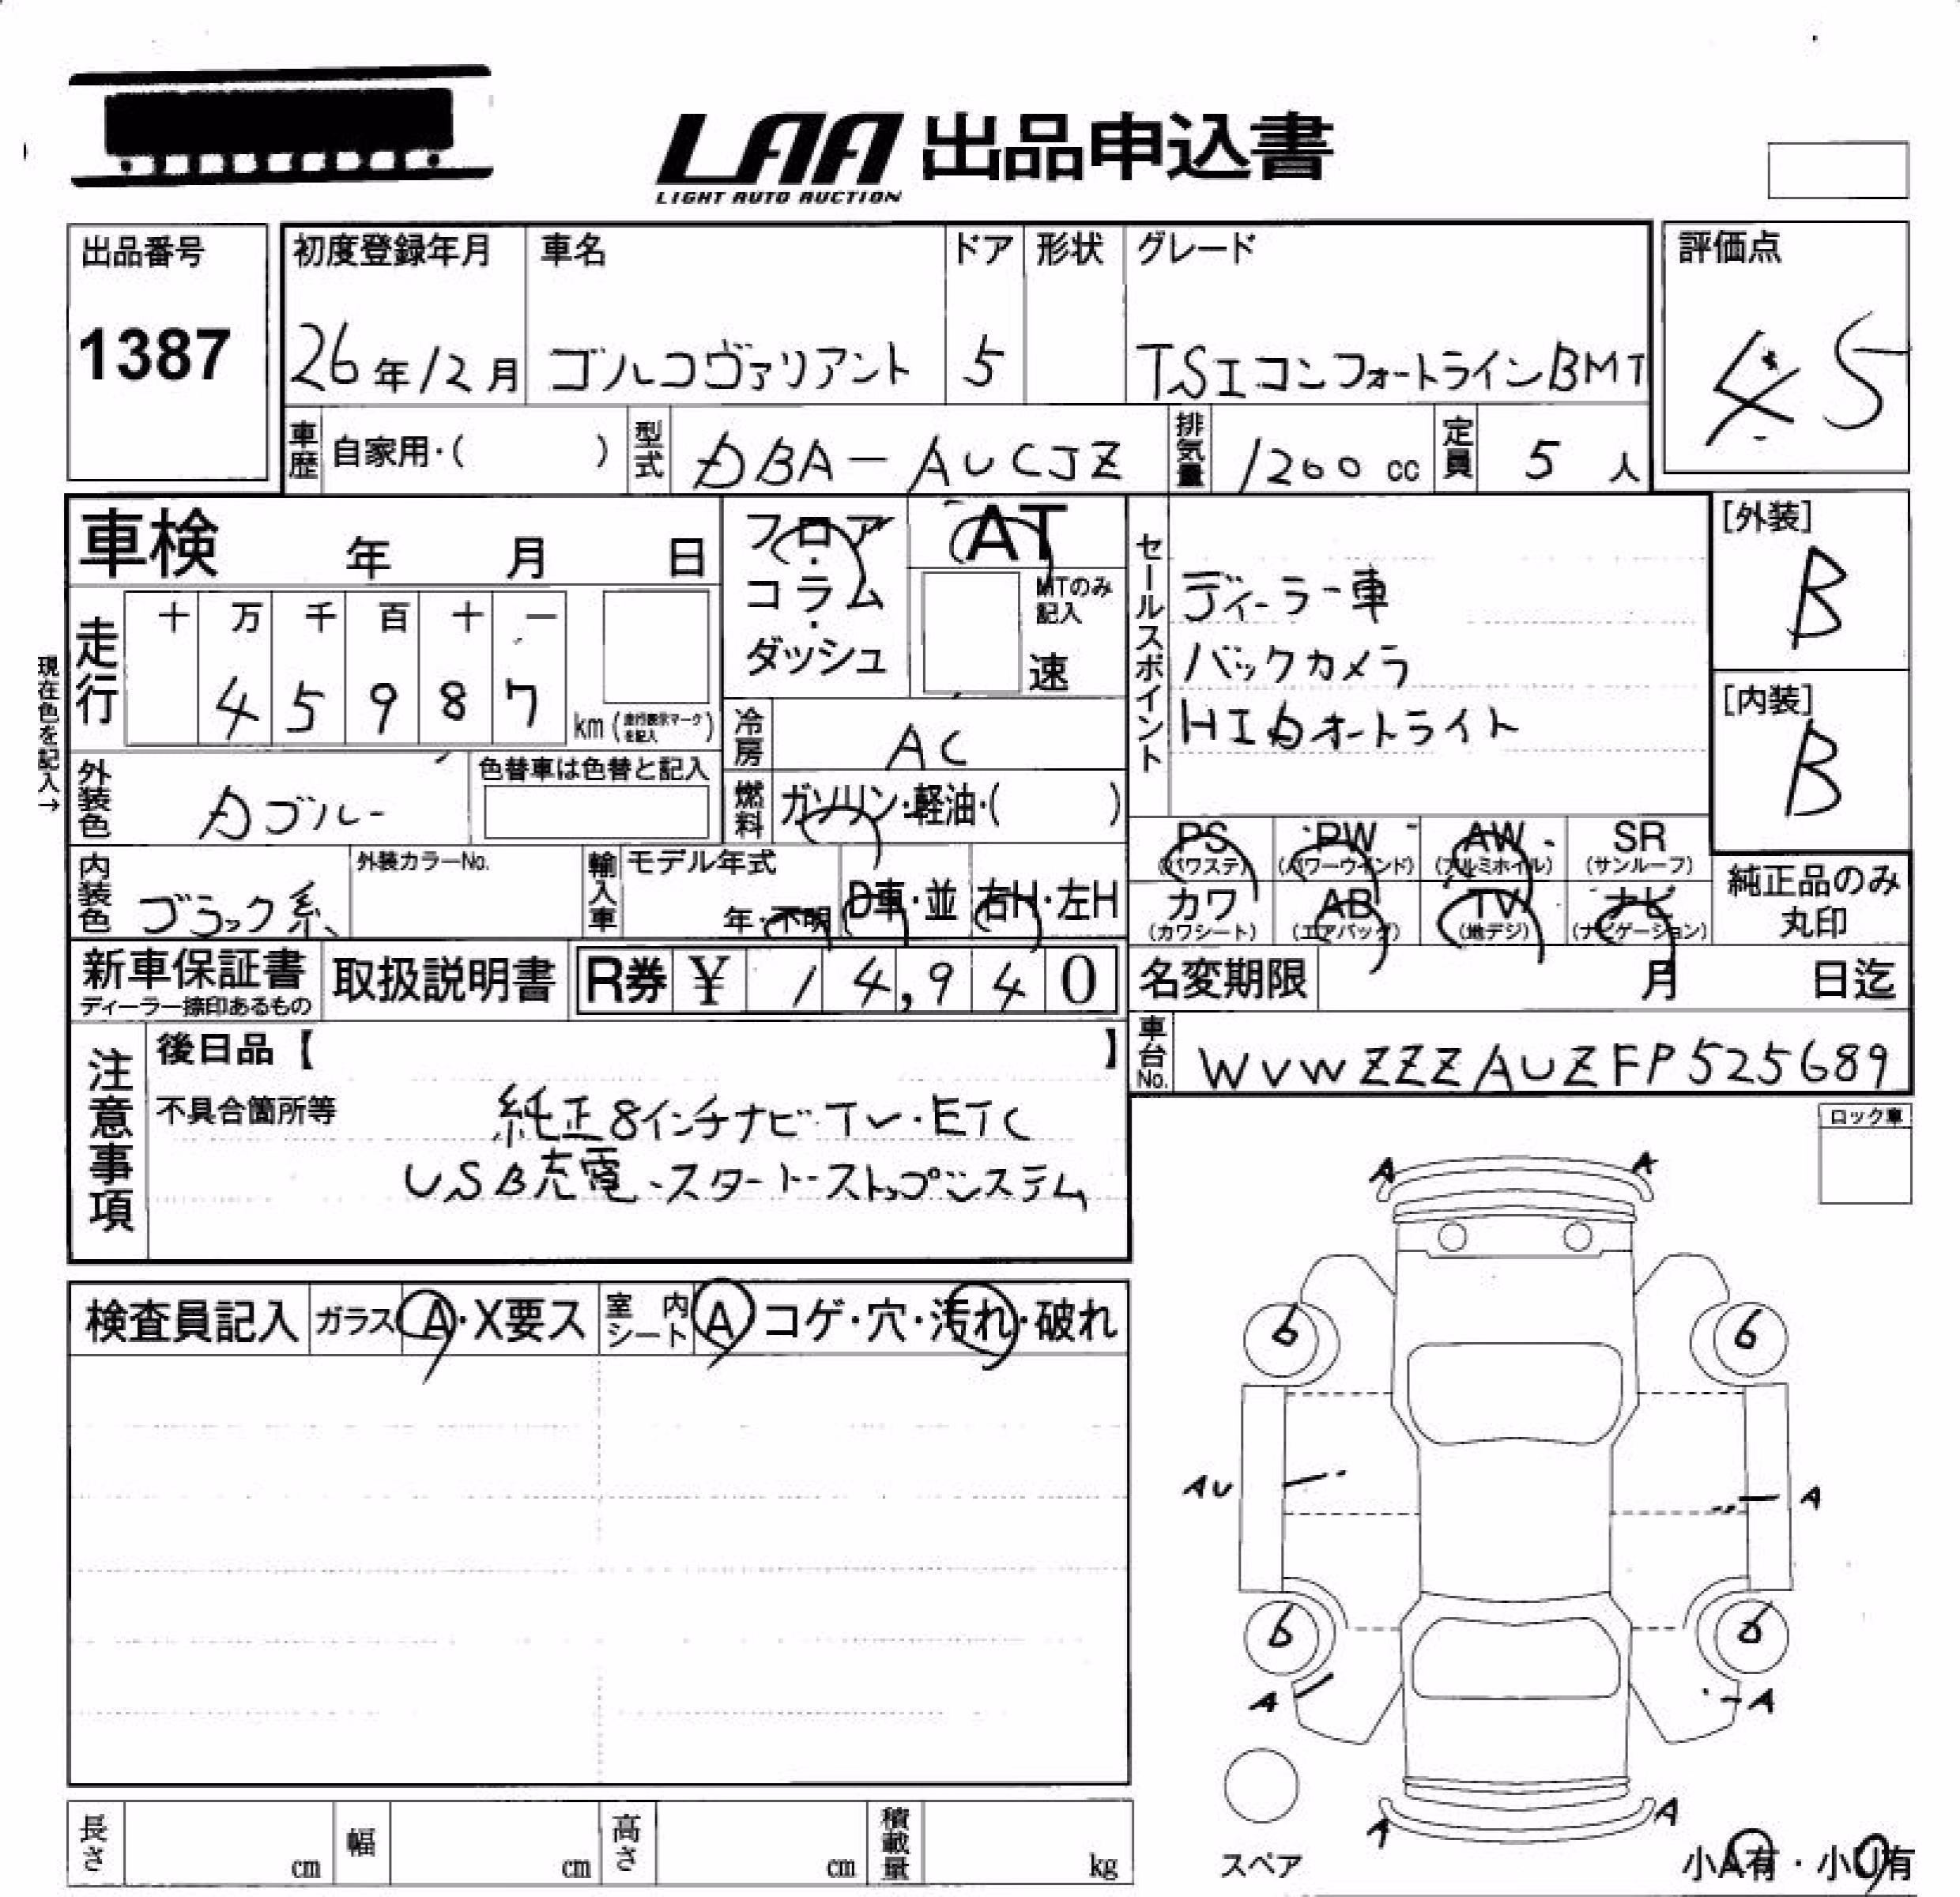 LAA 出品申込書
LIGHT AUTO AUCTION
出品番号
1387
初度登録年月 車名 ドア 形状 グレード
26年12月 ゴルフヴァリアント 5 TSIコンフォートラインBMT
評価点
4.5
車歴 自家用・( ) 型式 DBA-AUCJZ 排気量 1200 cc 定員 5 人
車検 年 月 日
フロア・コラム・ダッシュ
AT
MTのみ記入
速
セールスポイント
ディーラー車
バックカメラ
HIDオートライト
[外装]
B
[内装]
B
現在色を記入→
走行 十 万 千 百 十 一
4 5 9 8 7 km (走行表示マークを記入)
冷房 AC
外装色 Dブルー 色替車は色替と記入
燃料 ガソリン・軽油・( )
内装色 ブラック系 外装カラーNo. 輸入車 モデル年式
年・不明 D車・並 右H・左H
PS PW AW SR
(パワステ) (パワーウインド) (アルミホイル) (サンルーフ)
カワ AB TV ナビ
(カワシート) (エアバッグ) (地デジ) (ナビゲーション)
純正品のみ
丸印
新車保証書 取扱説明書 R券 ¥ 14,940
ディーラー捺印あるもの
名変期限 月 日迄
車台No. WVWZZZAUZFP525689
注意事項
後日品【 】
不具合箇所等 純正8インチナビ・TV・ETC
USB充電・スタート・ストップシステム
ロック車
検査員記入 ガラス A・X要ス 室内シート A コゲ・穴・汚れ・破れ
A A
6 6
AU A
6 6
A A
A A
スペア
小A有・小U有
長さ cm 幅 cm 高さ cm 積載量 kg